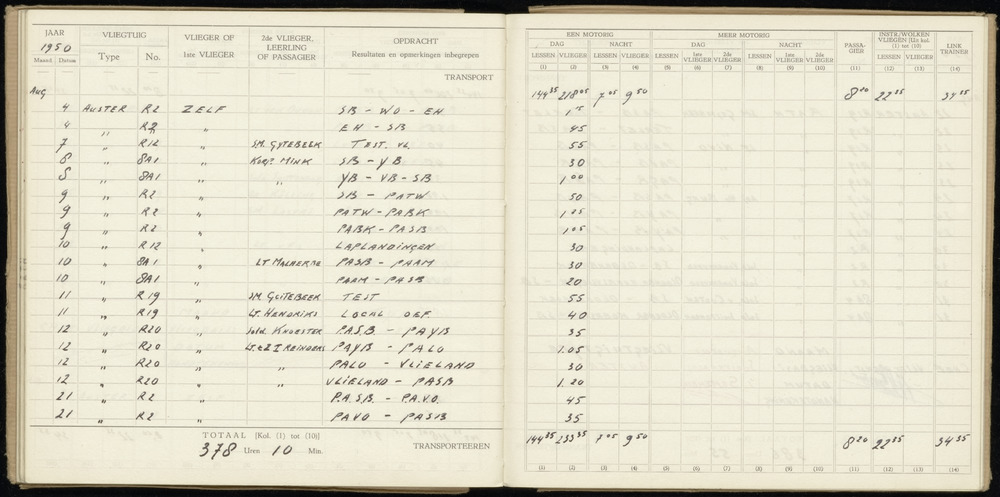 JAAR VLIEGTUIG VLIEGER OF 1ste VLIEGER 2de VLIEGER, LEERLING OF PASSAGIER OPDRACHT Resultaten en opmerkingen inbegrepen
1950
Maand Datum Type No.
TRANSPORT
AUG
4 AUSTER R2 ZELF SB - WO - EH
4 " R2 " EH - SB
7 " R12 " SM. GYTEBEEK TEST. VL.
8 " 8A1 " KORP. MINK SB - YB
8 " 8A1 " " YB - VB - SB
9 " R2 " SB - PATW
9 " R2 " PATW - PABK
9 " R2 " PABK - PASB
10 " R12 " LAPLANDINGEN
10 " 8A1 " LT MALHERBE PASB - PAAM
10 " 8A1 " PAAM - PASB
11 " R19 " SM. GYTEBEEK TEST
11 " R19 " LT. HENDRIKS LOCAL OEF.
12 " R20 " Sold. KNOESTER P.A.S.B - PAYB
12 " R20 " LT. t Z I REINDERS PAYB - PALO
12 " R20 " " PALO - VLIELAND
12 " R20 " " VLIELAND - PASB
21 " R2 " P.A.S.B. - PA.VO.
21 " R2 " PAVO - PASB
TOTAAL [Kol. (1) tot (10)]
378 Uren 10 Min.
TRANSPORTEEREN
EEN MOTORIG MEER MOTORIG PASSA-GIER INSTR./WOLKEN VLIEGEN [Uit kol. (1) tot (10)] LINK TRAINER
DAG NACHT DAG NACHT
LESSEN VLIEGER LESSEN VLIEGER LESSEN 1ste VLIEGER 2de VLIEGER LESSEN 1ste VLIEGER 2de VLIEGER LESSEN VLIEGEN
(1) (2) (3) (4) (5) (6) (7) (8) (9) (10) (11) (12) (13) (14)
144 35 218 05 7 05 9 50 8 20 22 35 34 55
45
55
30
1 00
50
1 05
1 05
30
30
20
55
40
35
1.05
30
1.20
45
35
144 35 233 35 7 05 9 50 8 20 22 35 34 55
(1) (2) (3) (4) (5) (6) (7) (8) (9) (10) (11) (12) (13) (14)